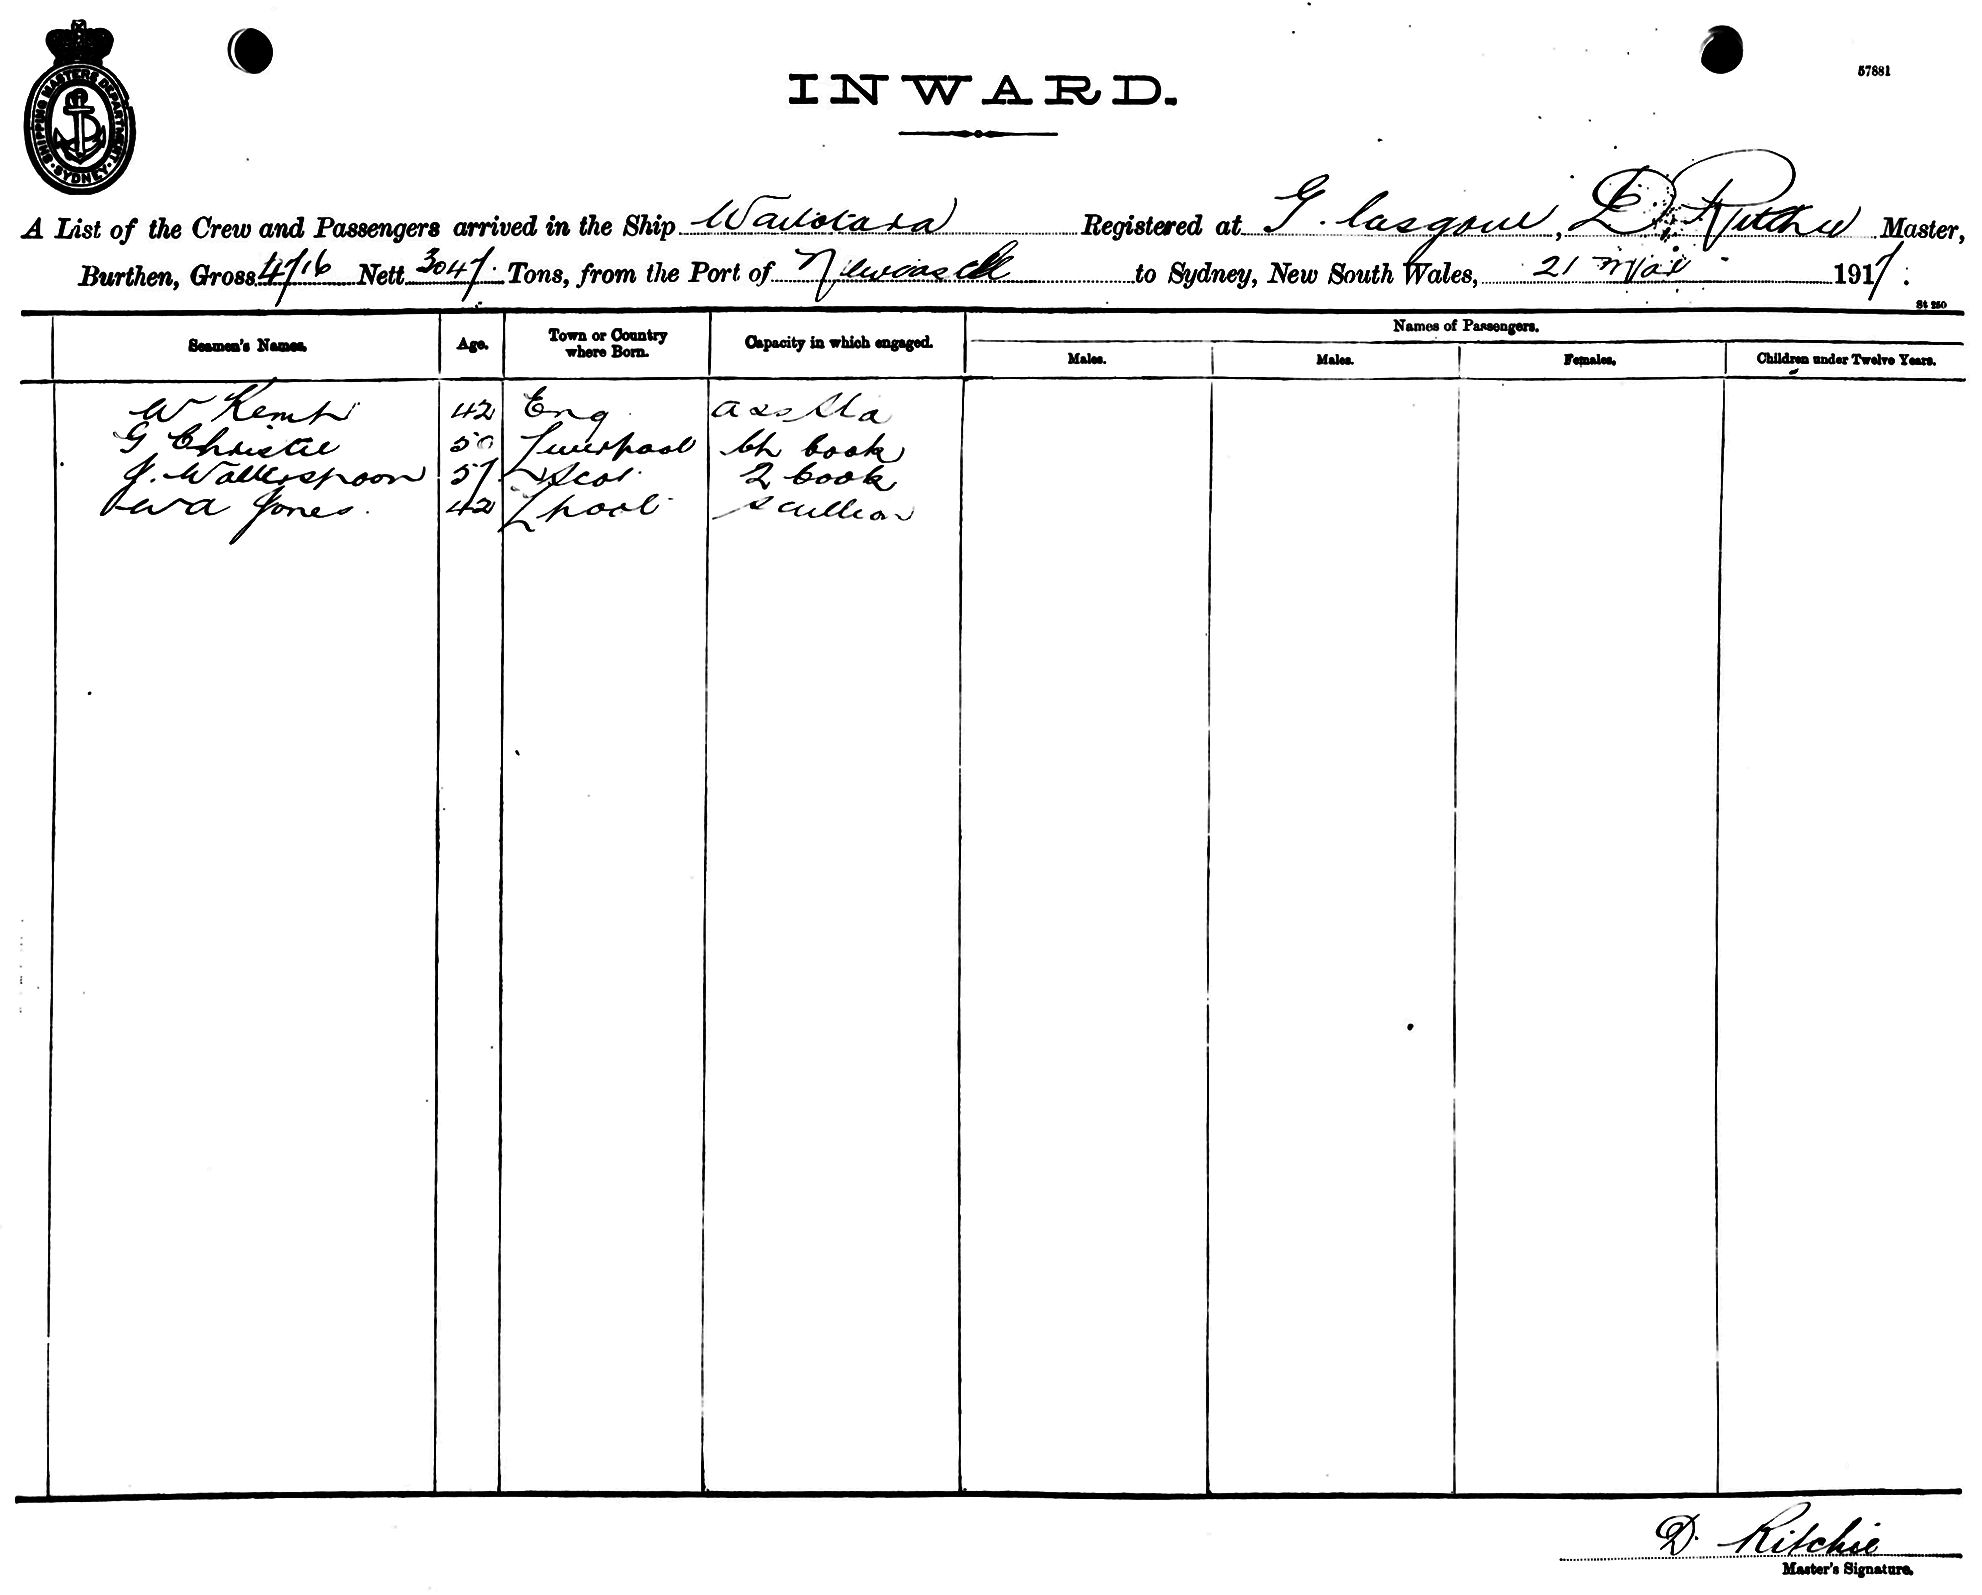 SHIPPING MASTERS DEPARTMENT · SYDNEY ·
57881
INWARD.
A List of the Crew and Passengers arrived in the Ship Waikotara Registered at Glasgow, D. Ritchie Master,
Burthen, Gross 4716 Nett 3047 Tons, from the Port of Newcastle to Sydney, New South Wales, 21 Mar 1917.
St 250
Seamen's Names. Age. Town or Country where Born. Capacity in which engaged. Names of Passengers.
Males. Males. Females. Children under Twelve Years.
W Kemp 42 Eng
G Christie 50 Liverpool Ch Cook
J. Watterspoon 57 Scot 2 Cook
Jones. 42 Lpool Scullion
D. Ritchie
Master's Signature.